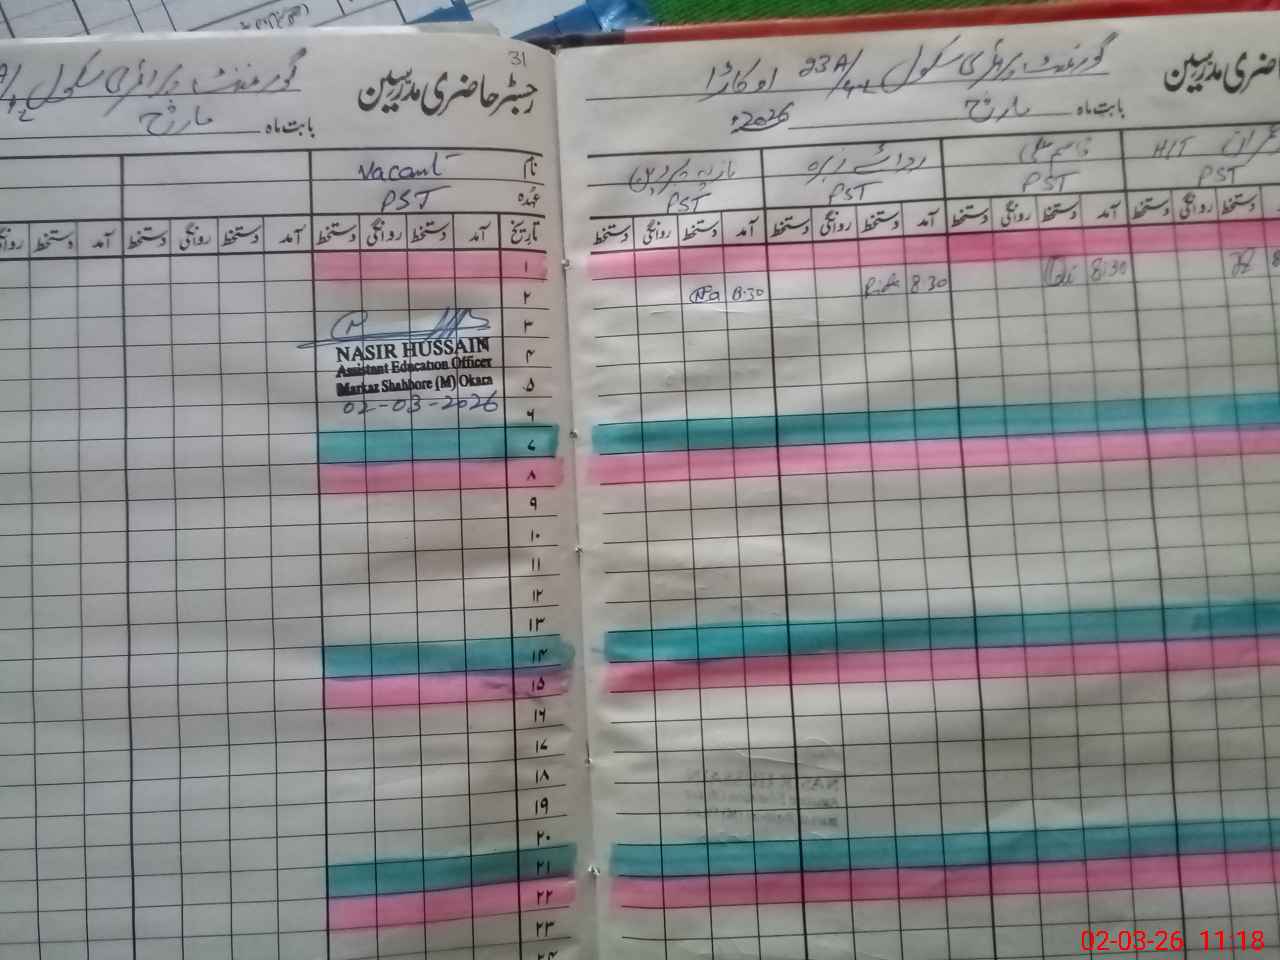 31
رجسٹر حاضری مدرسین گورنمنٹ پرائمری سکول
بابت ماہ مارچ
نام Vacant
عہدہ PST
تاریخ آمد دستخط روانگی دستخط آمد دستخط روانگی دستخط آمد دستخط
گورنمنٹ پرائمری سکول 23A اوکاڑا
بابت ماہ مارچ 2026
H/T قاسم علی
PST PST PST PST
دستخط روانگی دستخط آمد دستخط روانگی دستخط آمد دستخط روانگی دستخط آمد دستخط روانگی دستخط
۱
۲
8:30 8:30 8:30
۳
NASIR HUSSAIN
۴
Assistant Education Officer
Markaz Shahbore (M) Okara
۵
02-03-2026
۶
۷
۸
۹
۱۰
۱۱
۱۲
۱۳
۱۴
۱۵
۱۶
۱۷
۱۸
۱۹
۲۰
۲۱
۲۲
۲۳
۲۴
02-03-26 11:18